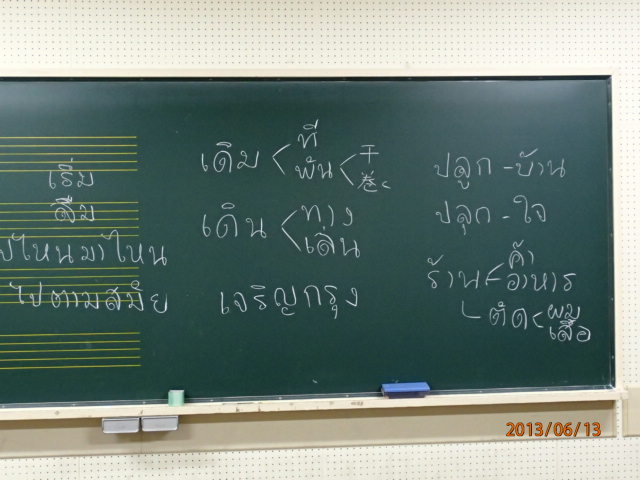 เริ่ม
ลืม
ไปไหนมาไหน
ไปตามสมัย
เดิม < ที่
พัน < 干
巻く
เดิน < ทาง
เล่น
เจริญกรุง
ปลูก - บ้าน
ปลุก - ใจ
ร้าน < ค้า
อาหาร
ตัด < ผม
เสื้อ
2013/06/13